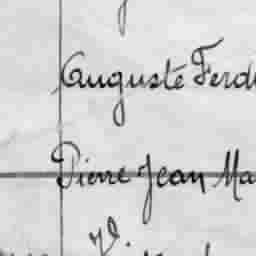 Auguste Ferd
Pierre Jean Ma